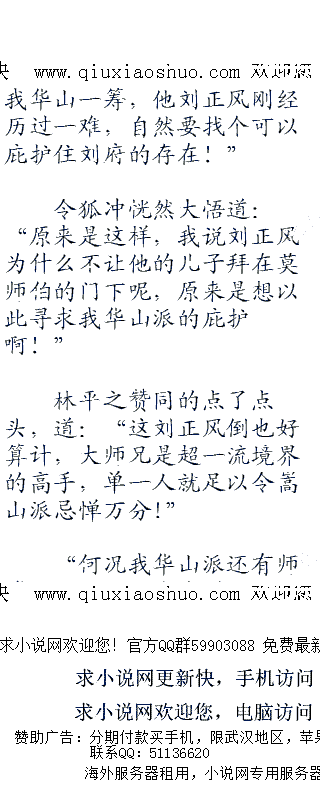 快 www.qiuxiaoshuo.com 欢迎您
我华山一筹，他刘正风刚经
历过一难，自然要找个可以
庇护住刘府的存在！”
令狐冲恍然大悟道：
“原来是这样，我说刘正风
为什么不让他的儿子拜在莫
师伯的门下呢，原来是想以
此寻求我华山派的庇护
啊！”
林平之赞同的点了点
头，道：“这刘正风倒也好
算计，大师兄是超一流境界
的高手，单一人就足以令嵩
山派忌惮万分！”
“何况我华山派还有师
www.qiuxiaoshuo.com 欢迎您
求小说网欢迎您！官方QQ群59903088 免费最新
求小说网更新快，手机访问
求小说网欢迎您，电脑访问
赞助广告：分期付款买手机，限武汉地区，苹果
联系QQ：51136620
海外服务器租用，小说网专用服务器